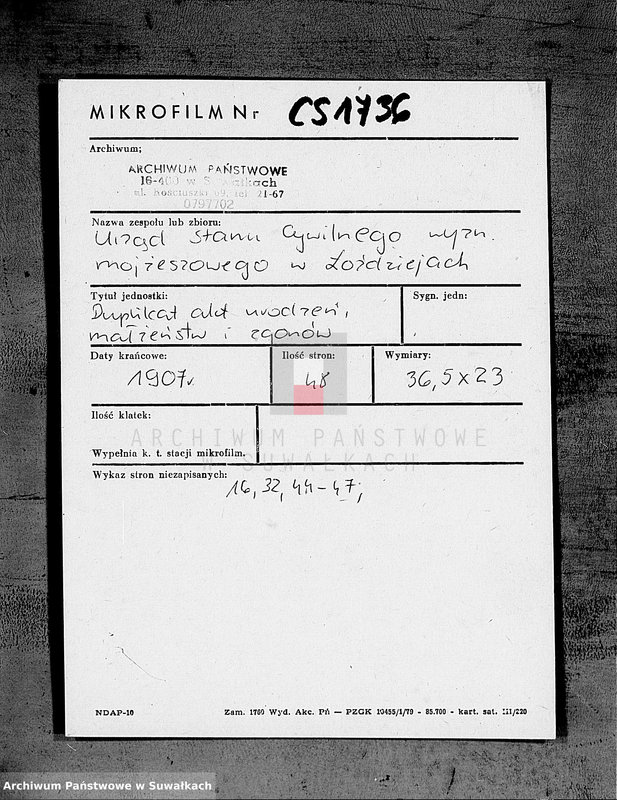 MIKROFILM Nr CS1736
Archiwum;
ARCHIWUM PAŃSTWOWE
16-400 w Suwałkach
ul. Kościuszki 69, tel. 21-67
0797702
Nazwa zespołu lub zbioru:
Urząd Stanu Cywilnego wyzn.
mojżeszowego w Łoździejach
Tytuł jednostki:
Duplikat akt urodzeń,
małżeństw i zgonów
Sygn. jedn:
Daty krańcowe:
1907r.
Ilość stron:
48
Wymiary:
36,5x23
Ilość klatek:
Wypełnia k. t. stacji mikrofilm.
ARCHIWUM PAŃSTWOWE
W SUWAŁKACH
Wykaz stron niezapisanych:
16, 32, 44-47,
NDAP-10
Zam. 1760 Wyd. Akc. Pń — PZGK 10455/1/79 - 85.700 - kart. sat. III/220
Archiwum Państwowe w Suwałkach